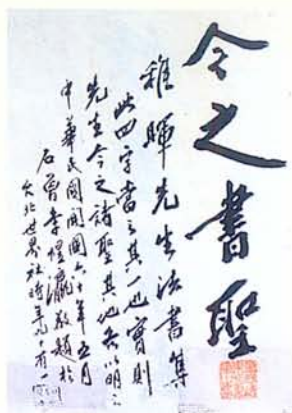 今之書聖
稚暉先生法書集
此四字當之其一也實則
先生今之諸聖其他無以明之
中華民國開國六十年五月
石曾李煜瀛敬題於
大北世界社時年九十有一